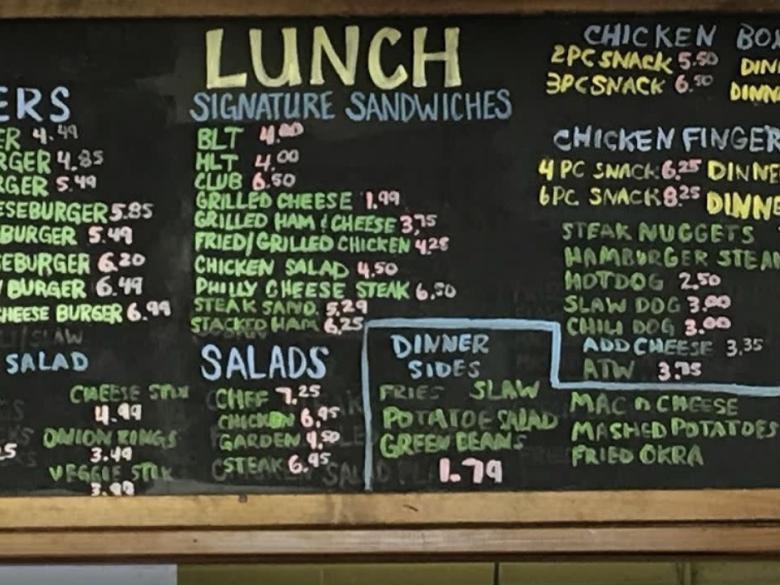 LUNCH
ERS
ER 4.49
RGER 4.85
RGER 5.49
ESEBURGER 5.85
BURGER 5.49
EBURGER 6.20
BURGER 6.49
HEESE BURGER 6.99
SLAW
SALAD
CHEESE STIX
4.99
ONION RINGS
3.49
VEGGIE STIX
SIGNATURE SANDWICHES
BLT 4.00
HLT 4.00
CLUB 6.50
GRILLED CHEESE 1.99
GRILLED HAM & CHEESE 3,75
FRIED/GRILLED CHICKEN 4.25
CHICKEN SALAD 4.50
PHILLY CHEESE STEAK 6.50
STEAK SAND. 5.29
STACKED HAM 6,25
SALADS
CHEF 7.25
CHICKEN 6,95
GARDEN 4,50
STEAK 6.95
DINNER
SIDES
FRIES SLAW
POTATOE SALAD
GREEN BEANS
1.79
MAC n CHEESE
MASHED POTATOES
FRIED OKRA
CHICKEN BOX
2PC SNACK 5.50 DINN
3PC SNACK 6.50 DINN
CHICKEN FINGER
4 PC SNACK 6,25 DINNE
6PC SNACK 8.25 DINNE
STEAK NUGGETS
HAMBURGER STEA
HOTDOG 2.50
SLAW DOG 3.00
CHILI DOG 3.00
ADD CHEESE 3.35
ATW 3.75